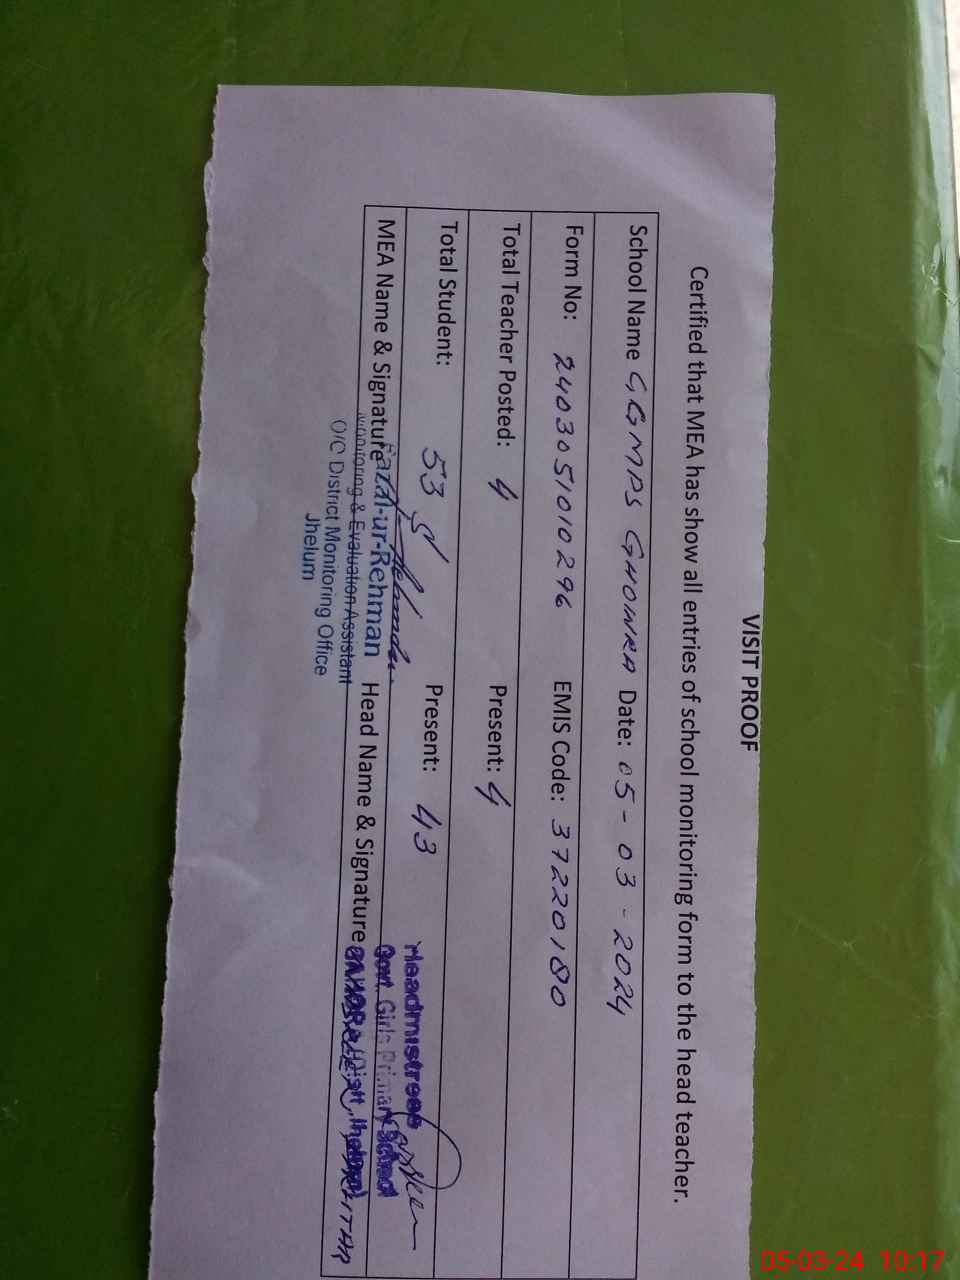 VISIT PROOF
Certified that MEA has show all entries of school monitoring form to the head teacher.
School Name GGMPS GHOWRA Date: 05-03-2024
Form No: 2403051010296 EMIS Code: 37220180
Total Teacher Posted: 4 Present: 4
Total Student: 53 Present: 43
MEA Name & Signature Fazal-ur-Rehman Head Name & Signature
Monitoring & Evaluation Assistant
O/C District Monitoring Office
Jhelum
Headmistress
Govt. Girls Primary School
Distt. Jhelum
05-03-24 10:17